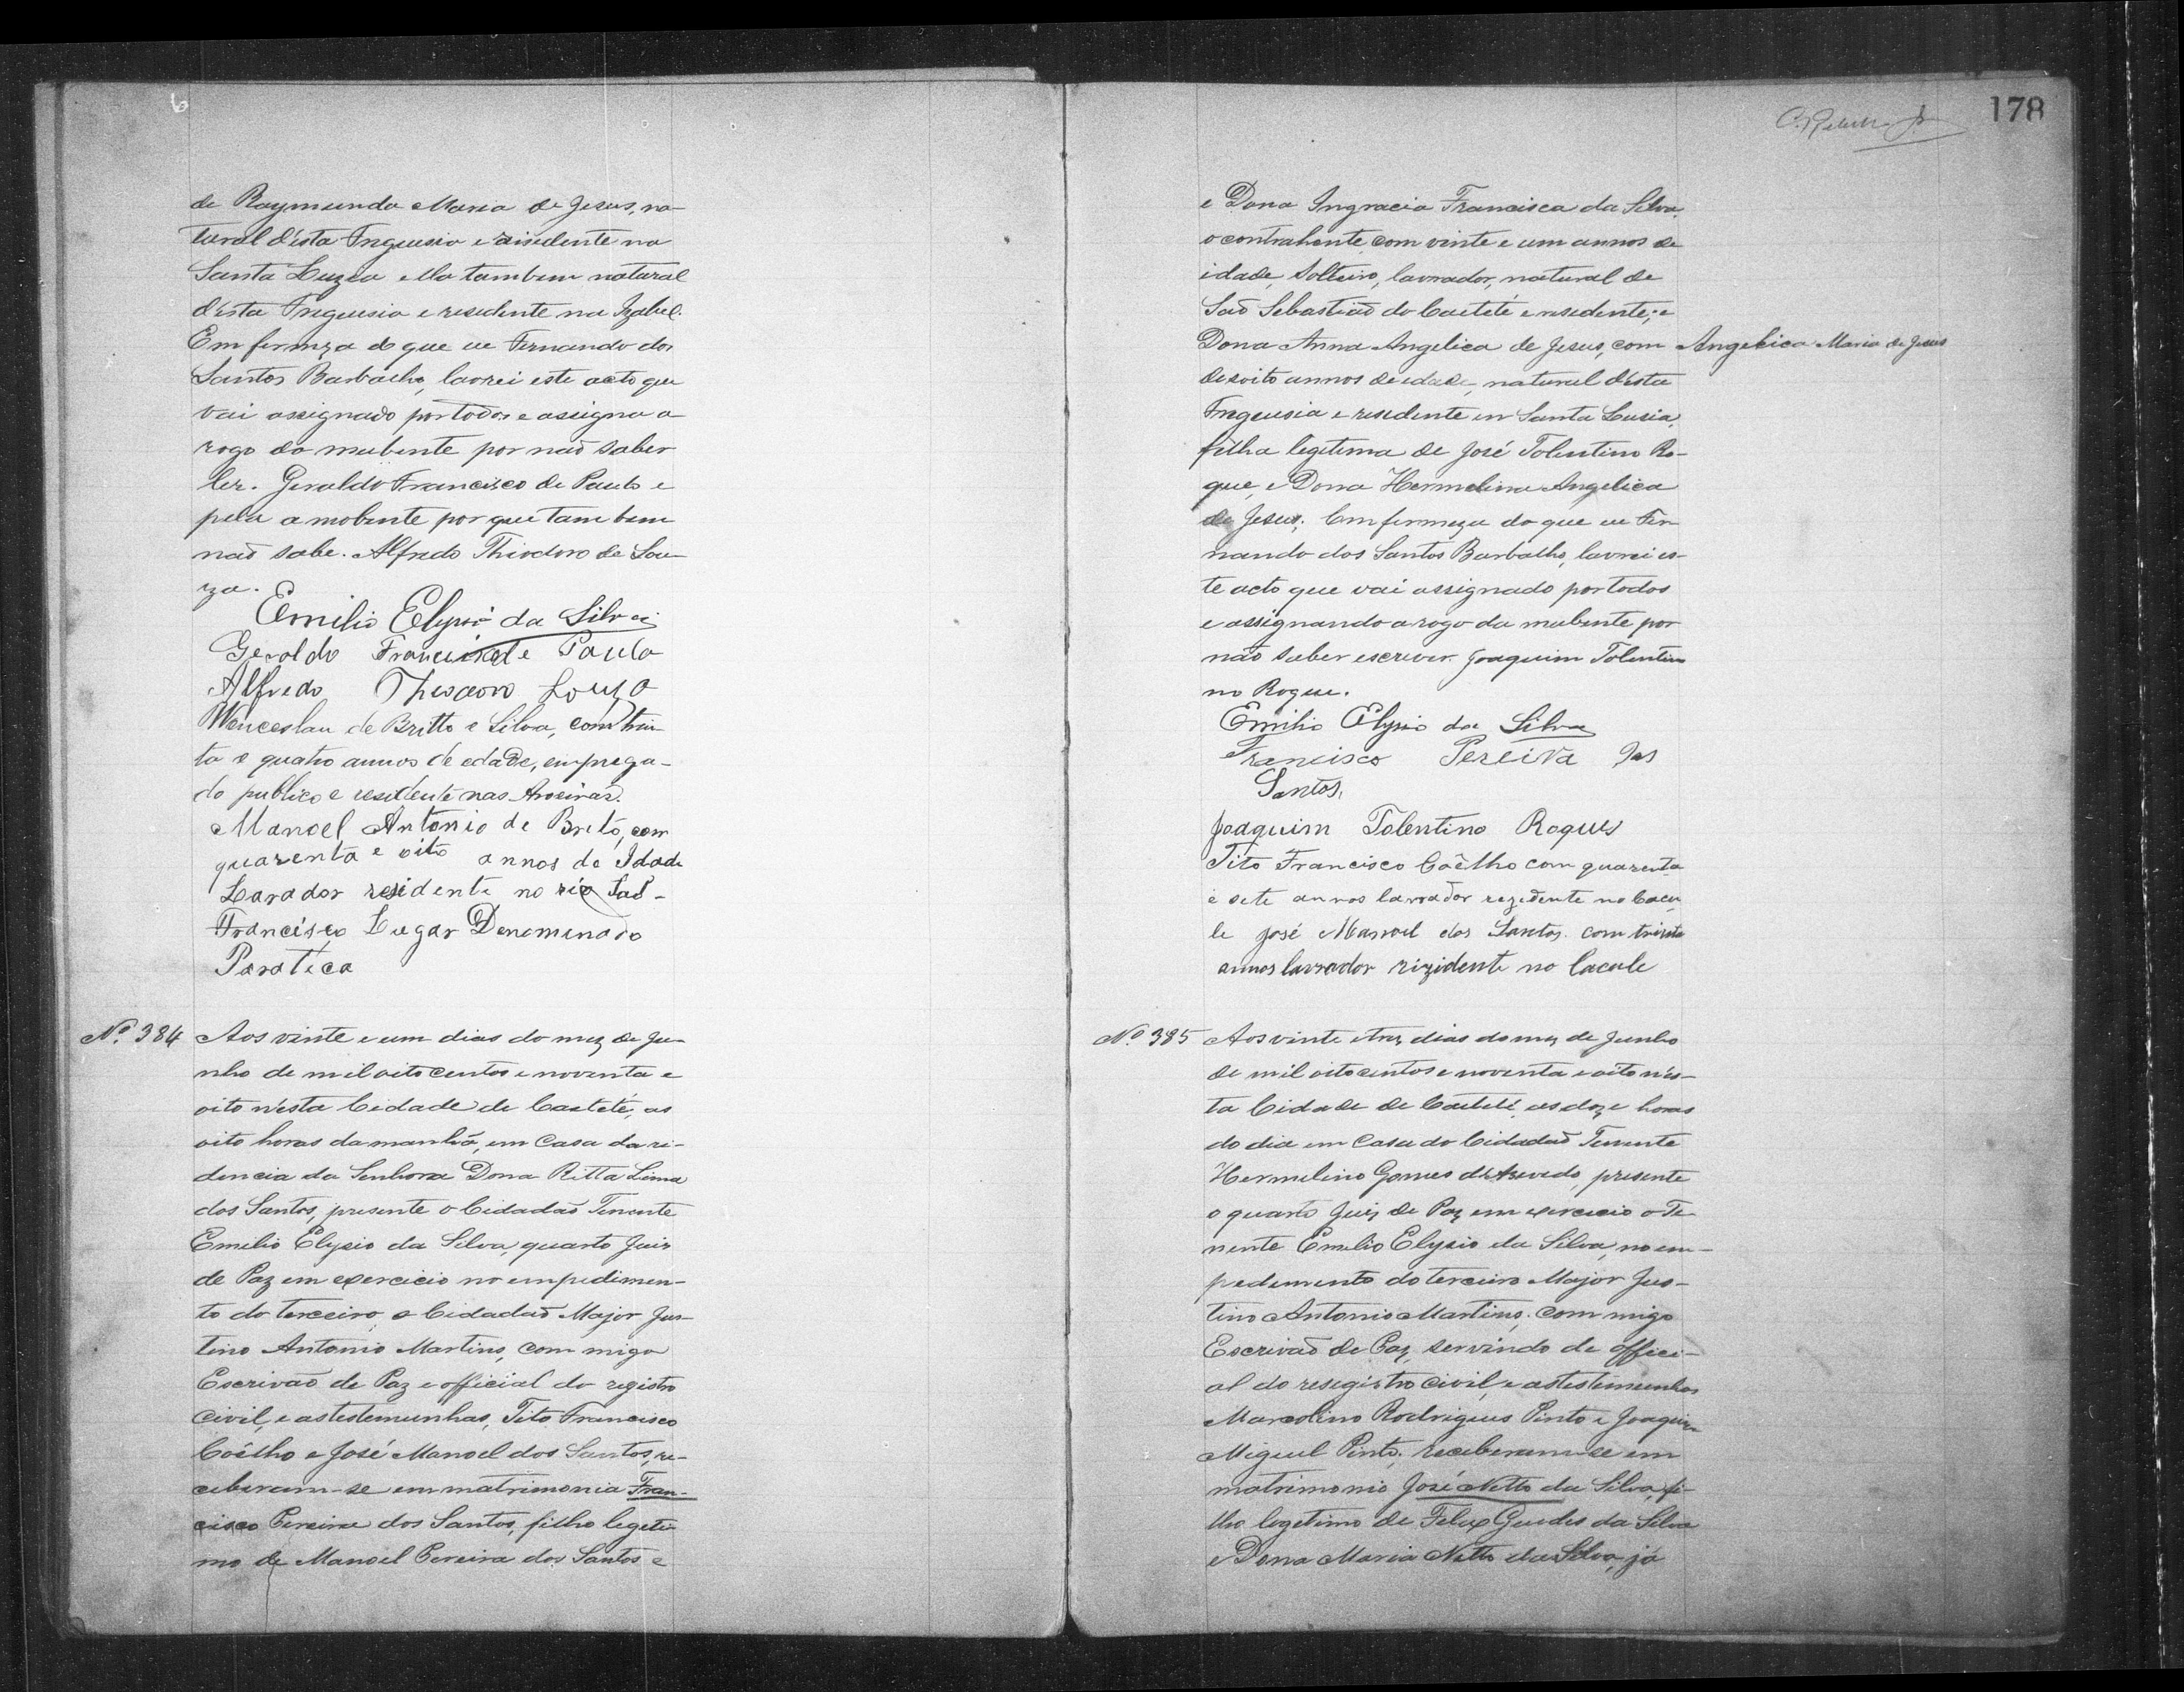 de Raymunda Maria de Jesus, na-
tural d'ésta Freguesia e risedente na
Santa Luzia ella tambem natural
d'ésta Freguesia e resedente na Izabel.
Em firmeza do que eu Fernando dos
Santos Barbalho, lavrei este acto que
vai assignado por todos e assigna a
rogo do nubente por naõ saber
ler. Geraldo Francisco de Paula e
pela a nobente por que tambem
naõ sabe. Alfredo Thiodoro de Sou-
za.
Emilio Elysio da Silva
Geraldo Francisco de Paula
Alfredo Theodoro Souza
Wenceslau de Britto e Silva, com trin-
ta e quatro annos de edade, emprega-
do publico e residente nas Aroeiras.
Manoel Antonio de Brito, com
quarenta e oito annos de Idade
Lavador residente no rio Saõ-
Francisco Lugar Denominado
Parateca
Nº. 384 Aos vinte e um dias do mez de Ju-
nho de mil oito centos e noventa e
oito n'ésta Cidade de Caeteté, as
oito horas da manhã, em Casa da ri-
dencia da Senhora Dona Ritta Lima
dos Santos, presente o Cidadaõ Tenente
Emilio Elysio da Silva, quarto Juiz
de Paz em exercicio no empedimen-
to do terceiro, o Cidadaõ Major Jus-
tino Antonio Martins, com migo
Escrivaõ de Paz e official do registro
Civil, e as testemunhas, Tito Francisco
Coêlho e José Manoel dos Santos, re-
ceberam-se em matrimonia Fran-
cisco Pereira dos Santos, filho legeti-
mo de Manoel Pereira dos Santos e
178
e Dona Ingracia Francisca da Silva.
o contrahente com vinte e um annos de
idade, Solteiro, lavrador, natural de
Saõ Sebastiaõ do Caeteté e resedente; e
Dona Anna Angelica de Jesus, com Angelica Maria de Jesus
desoito annos de edade, natural d'ésta
Freguesia e resedente em Santa Lusia,
filha legitima de José Tolentino Ro-
que, e Dona Hermelina Angelica
de Jesus. Em firmeza do que eu Fer-
nando dos Santos Barbalho, lavrei es-
te acto que vai assignado por todos
e assignando a rogo da nubente por
naõ saber escrever. Joaquim Tolentin
no Roque.
Emilio Elysio da Silva
Francisco Pereira dos
Santos,
Joaquim Tolentino Roques
Tito Francisco Coêlho com quarenta
e sete annos lavrador rezedente no Cacu
le José Manoel dos Santos com trinta
annos lavrador rizidente no Cacule
Nº. 385 Aos vinte e trez dias do mez de Junho
de mil oito centos e noventa e oito n'és-
ta Cidade de Caeteté, as doze horas
do dia em Casa do Cidadaõ Tenente
Hermelino Gomes d'Azevedo, presente
o quarto Juiz de Paz em exercicio o Te-
nente Emilio Elysio da Silva, no em-
pedimento do terceiro Major Jus-
tino Antonio Martins; com migo
Escrivaõ de Paz, servindo de offici-
al do resegistro Civil, e as testemunhas
Marcolino Rodrigues Pinto e Joaquim
Miguel Pinto; receberam-se em
matrimonio José Netto da Silva, fi-
lho legetimo de Felix Guedes da Silva
e Dona Maria Netto da Silva, já